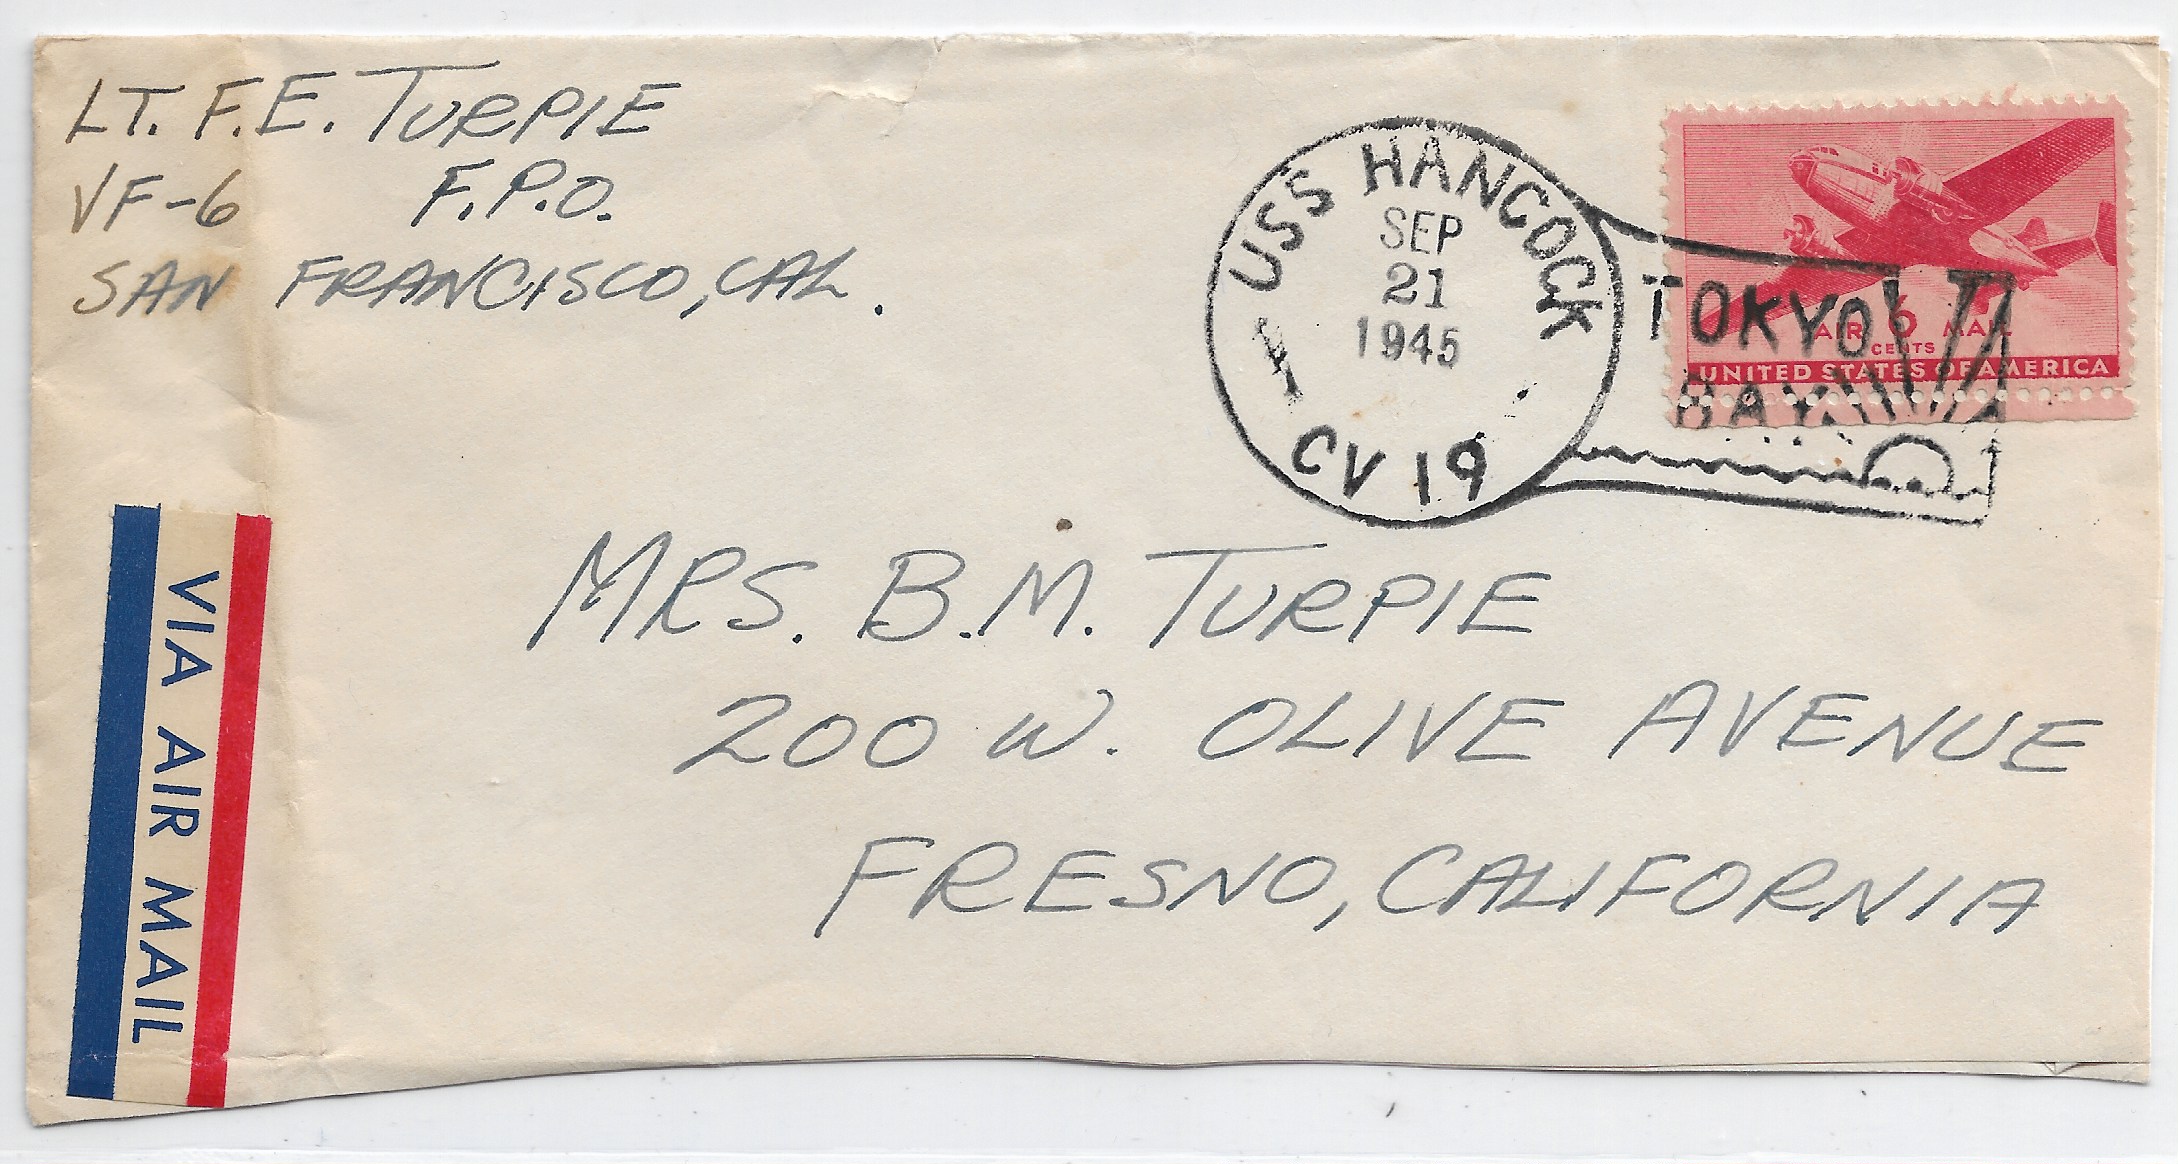 LT. F.E. TURPIE
VF-6 F.P.O.
SAN FRANCISCO, CAL.
USS HANCOCK
SEP
21
1945
CV 19
TOKYO
BAY
AIR 6 MAIL
CENTS
UNITED STATES OF AMERICA
VIA AIR MAIL
MRS. B.M. TURPIE
200 W. OLIVE AVENUE
FRESNO, CALIFORNIA